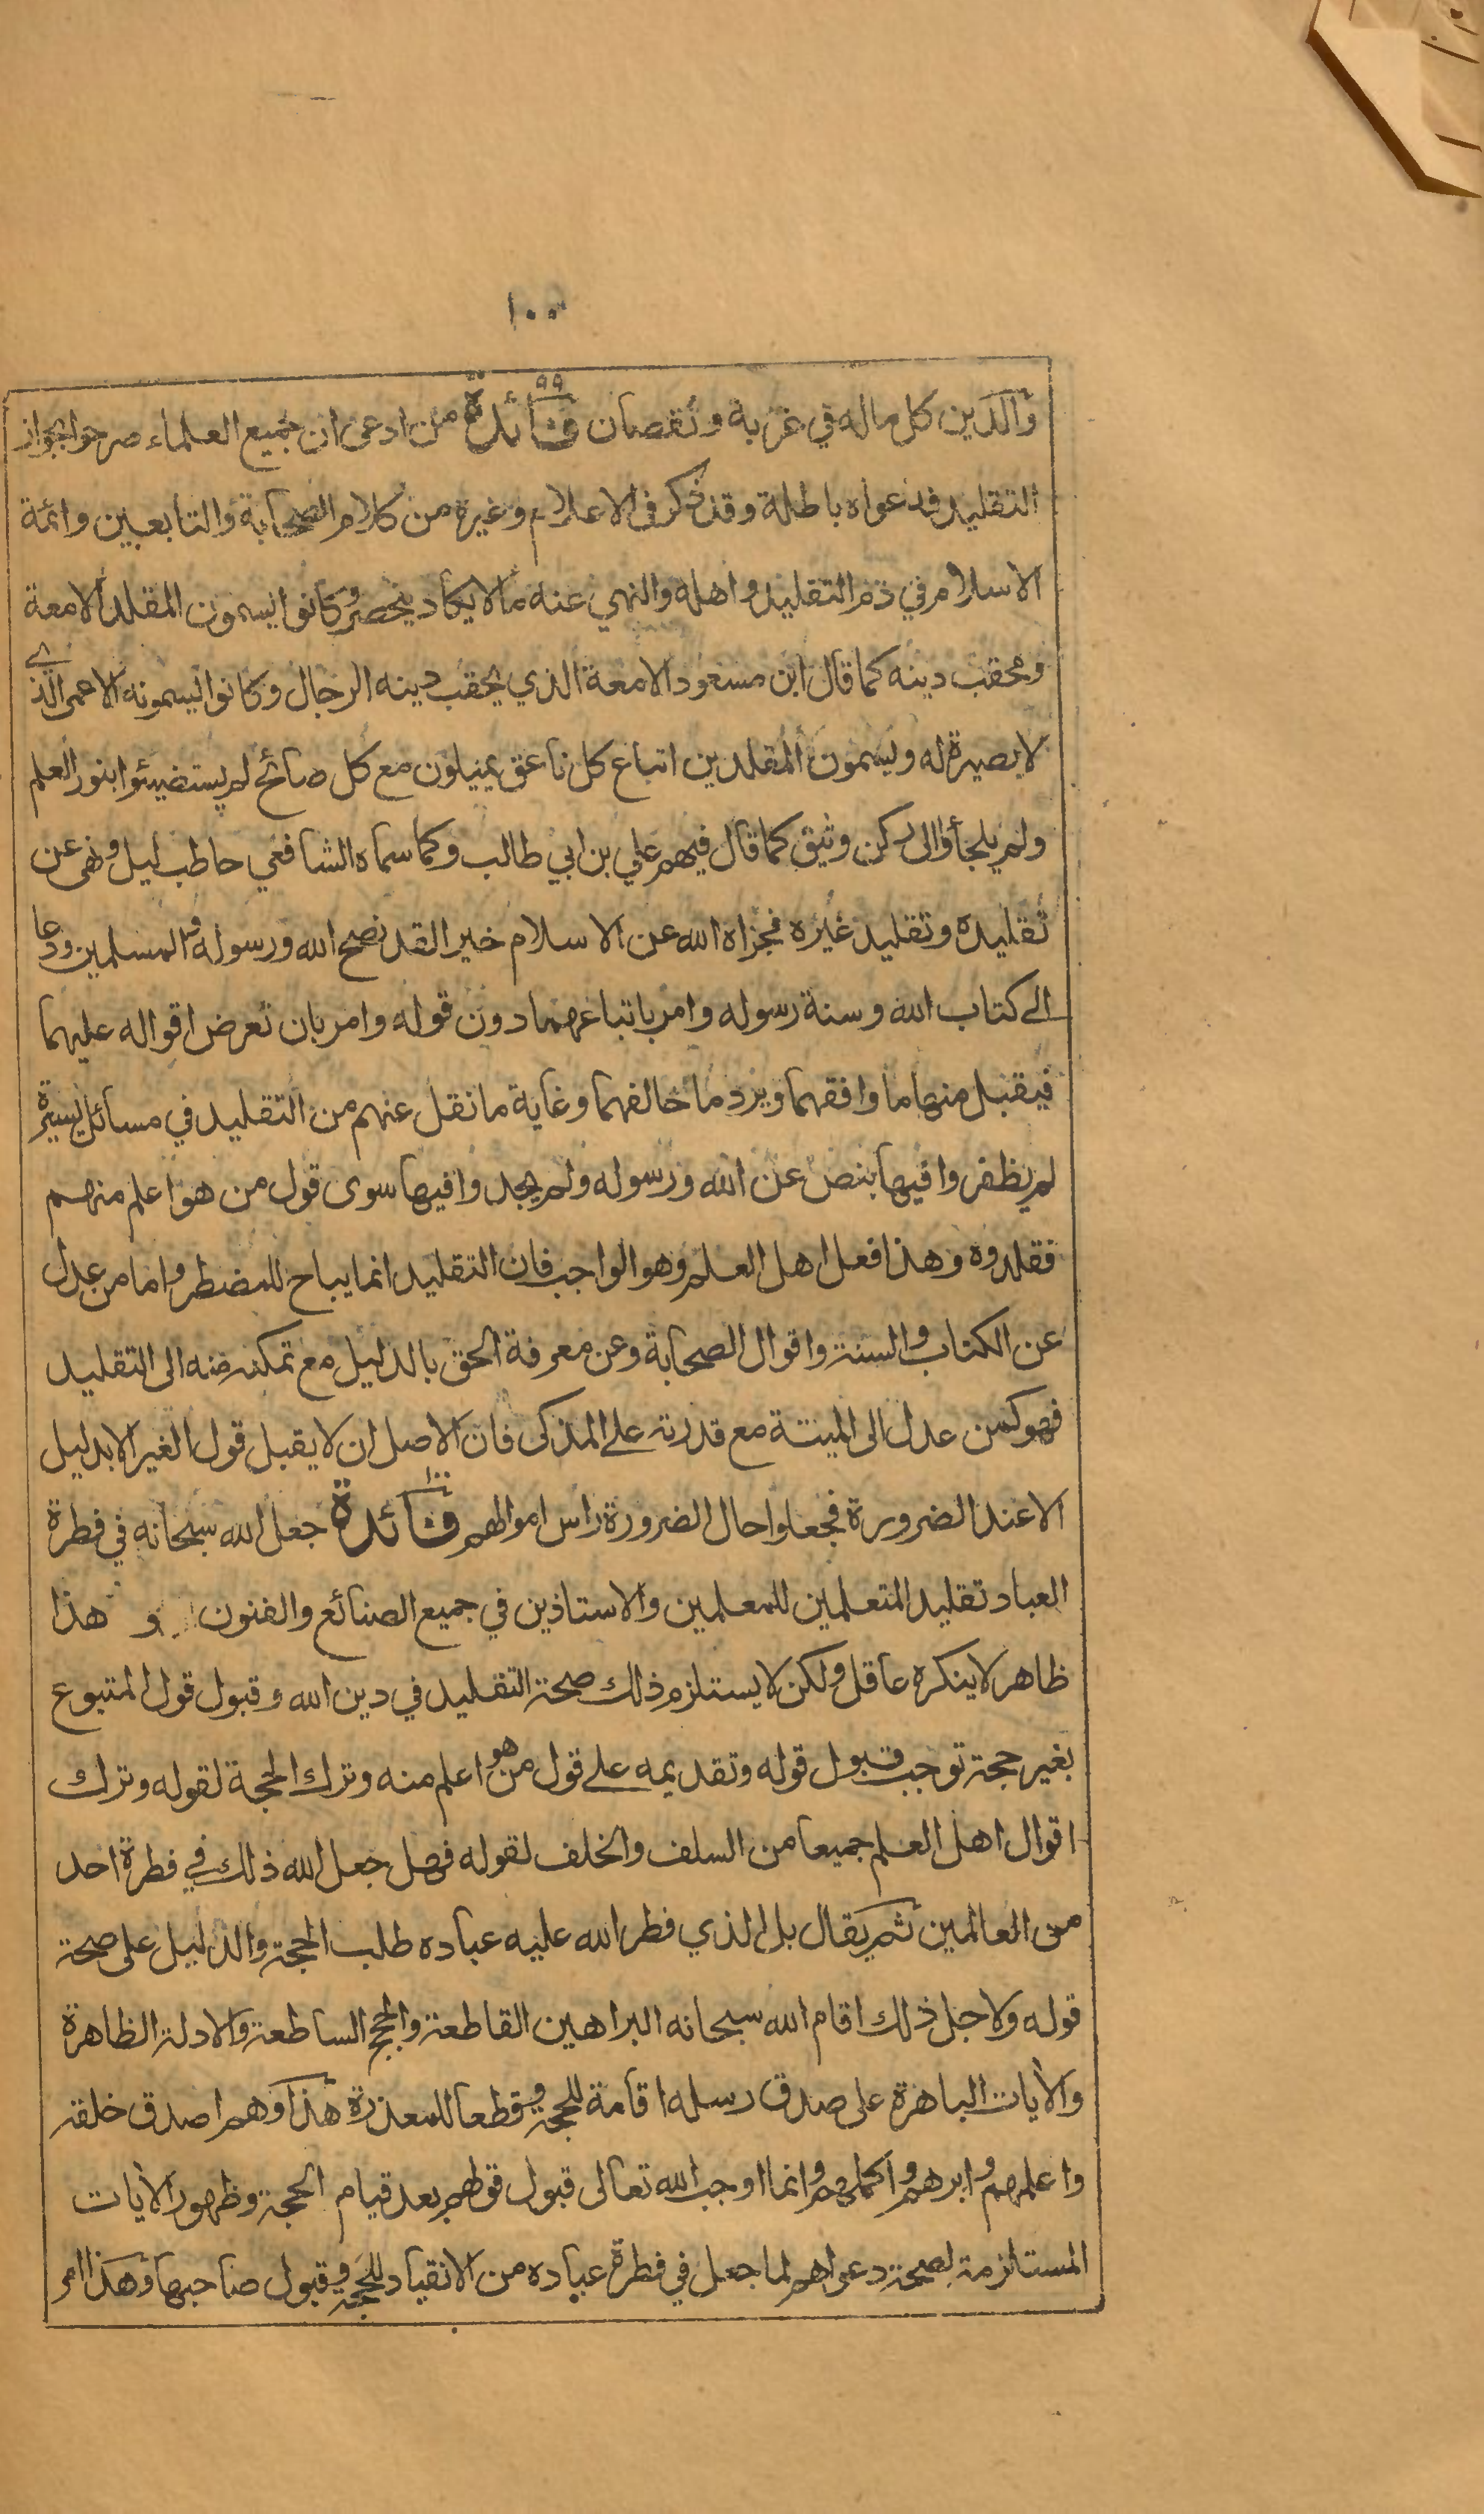 ١٠٠
والدين كل ماله في غربة ونقصان فائدة ٩٩ من ادعى ان جميع العلماء صرحوا بجواز
التقليد فدعواه باطلة وقد ذكر في الاعلام وغيره من كلام الصحابة والتابعين وائمة
الاسلام في ذم التقليد واهله والنهي عنه ما لا يكاد ينحصر وكانوا يسمون المقلد الامعة
ومحقب دينه كما قال ابن مسعود الامعة الذي يحقب دينه الرجال وكانوا يسمونه الاعمى الذي
لا بصيرة له ويسمون المقلدين اتباع كل ناعق يميلون مع كل صائح لم يستضيئوا بنور العلم
ولم يلجأوا الى ركن وثيق كما قال فيهم علي بن ابي طالب وكما سماه الشافعي حاطب ليل ونهى عن
تقليده وتقليد غيره فجزاه الله عن الاسلام خيرا لقد نصح الله ورسوله والمسلمين ودعا
الى كتاب الله وسنة رسوله وامر باتباعهما دون قوله وامر بان تعرض اقواله عليهما
فيقبل منها ما وافقهما ويرد ما خالفهما وغاية ما نقل عنهم من التقليد في مسائل يسيرة
لم يظفروا فيها بنص عن الله ورسوله ولم يجدوا فيها سوى قول من هو اعلم منهم
فقلدوه وهذا فعل اهل العلم وهو الواجب فان التقليد انما يباح للمضطر واما من عدل
عن الكتاب والسنة واقوال الصحابة وعن معرفة الحق بالدليل مع تمكنه منه الى التقليد
فهو كمن عدل الى الميتة مع قدرته على المذكى فان الاصل ان لا يقبل قول الغير الا بدليل
الا عند الضرورة فجعلوا حال الضرورة راس اموالهم فائدة ١٠٠ جعل الله سبحانه في فطرة
العباد تقليد المتعلمين للمعلمين والاستاذين في جميع الصنائع والفنون و هذا
ظاهر لا ينكره عاقل ولكن لا يستلزم ذلك صحة التقليد في دين الله وقبول قول المتبوع
بغير حجة توجب قبول قوله وتقديمه على قول من هو اعلم منه وترك الحجة لقوله وترك
اقوال اهل العلم جميعا من السلف والخلف لقوله فهل جعل الله ذلك في فطرة احد
من العالمين ثم يقال بل الذي فطر الله عليه عباده طلب الحجة والدليل على صحة
قوله ولاجل ذلك اقام الله سبحانه البراهين القاطعة والحجج الساطعة والادلة الظاهرة
والآيات الباهرة على صدق رسله اقامة للحجة وقطعا للمعذرة هذا وهم اصدق خلقه
واعلمهم وابرهم واكملهم وانما اوجب الله تعالى قبول قولهم بعد قيام الحجة وظهور الآيات
المستلزمة لصحة دعواهم لما جعل في فطرة عباده من الانقياد للحجة وقبول صاحبها وهذا امر